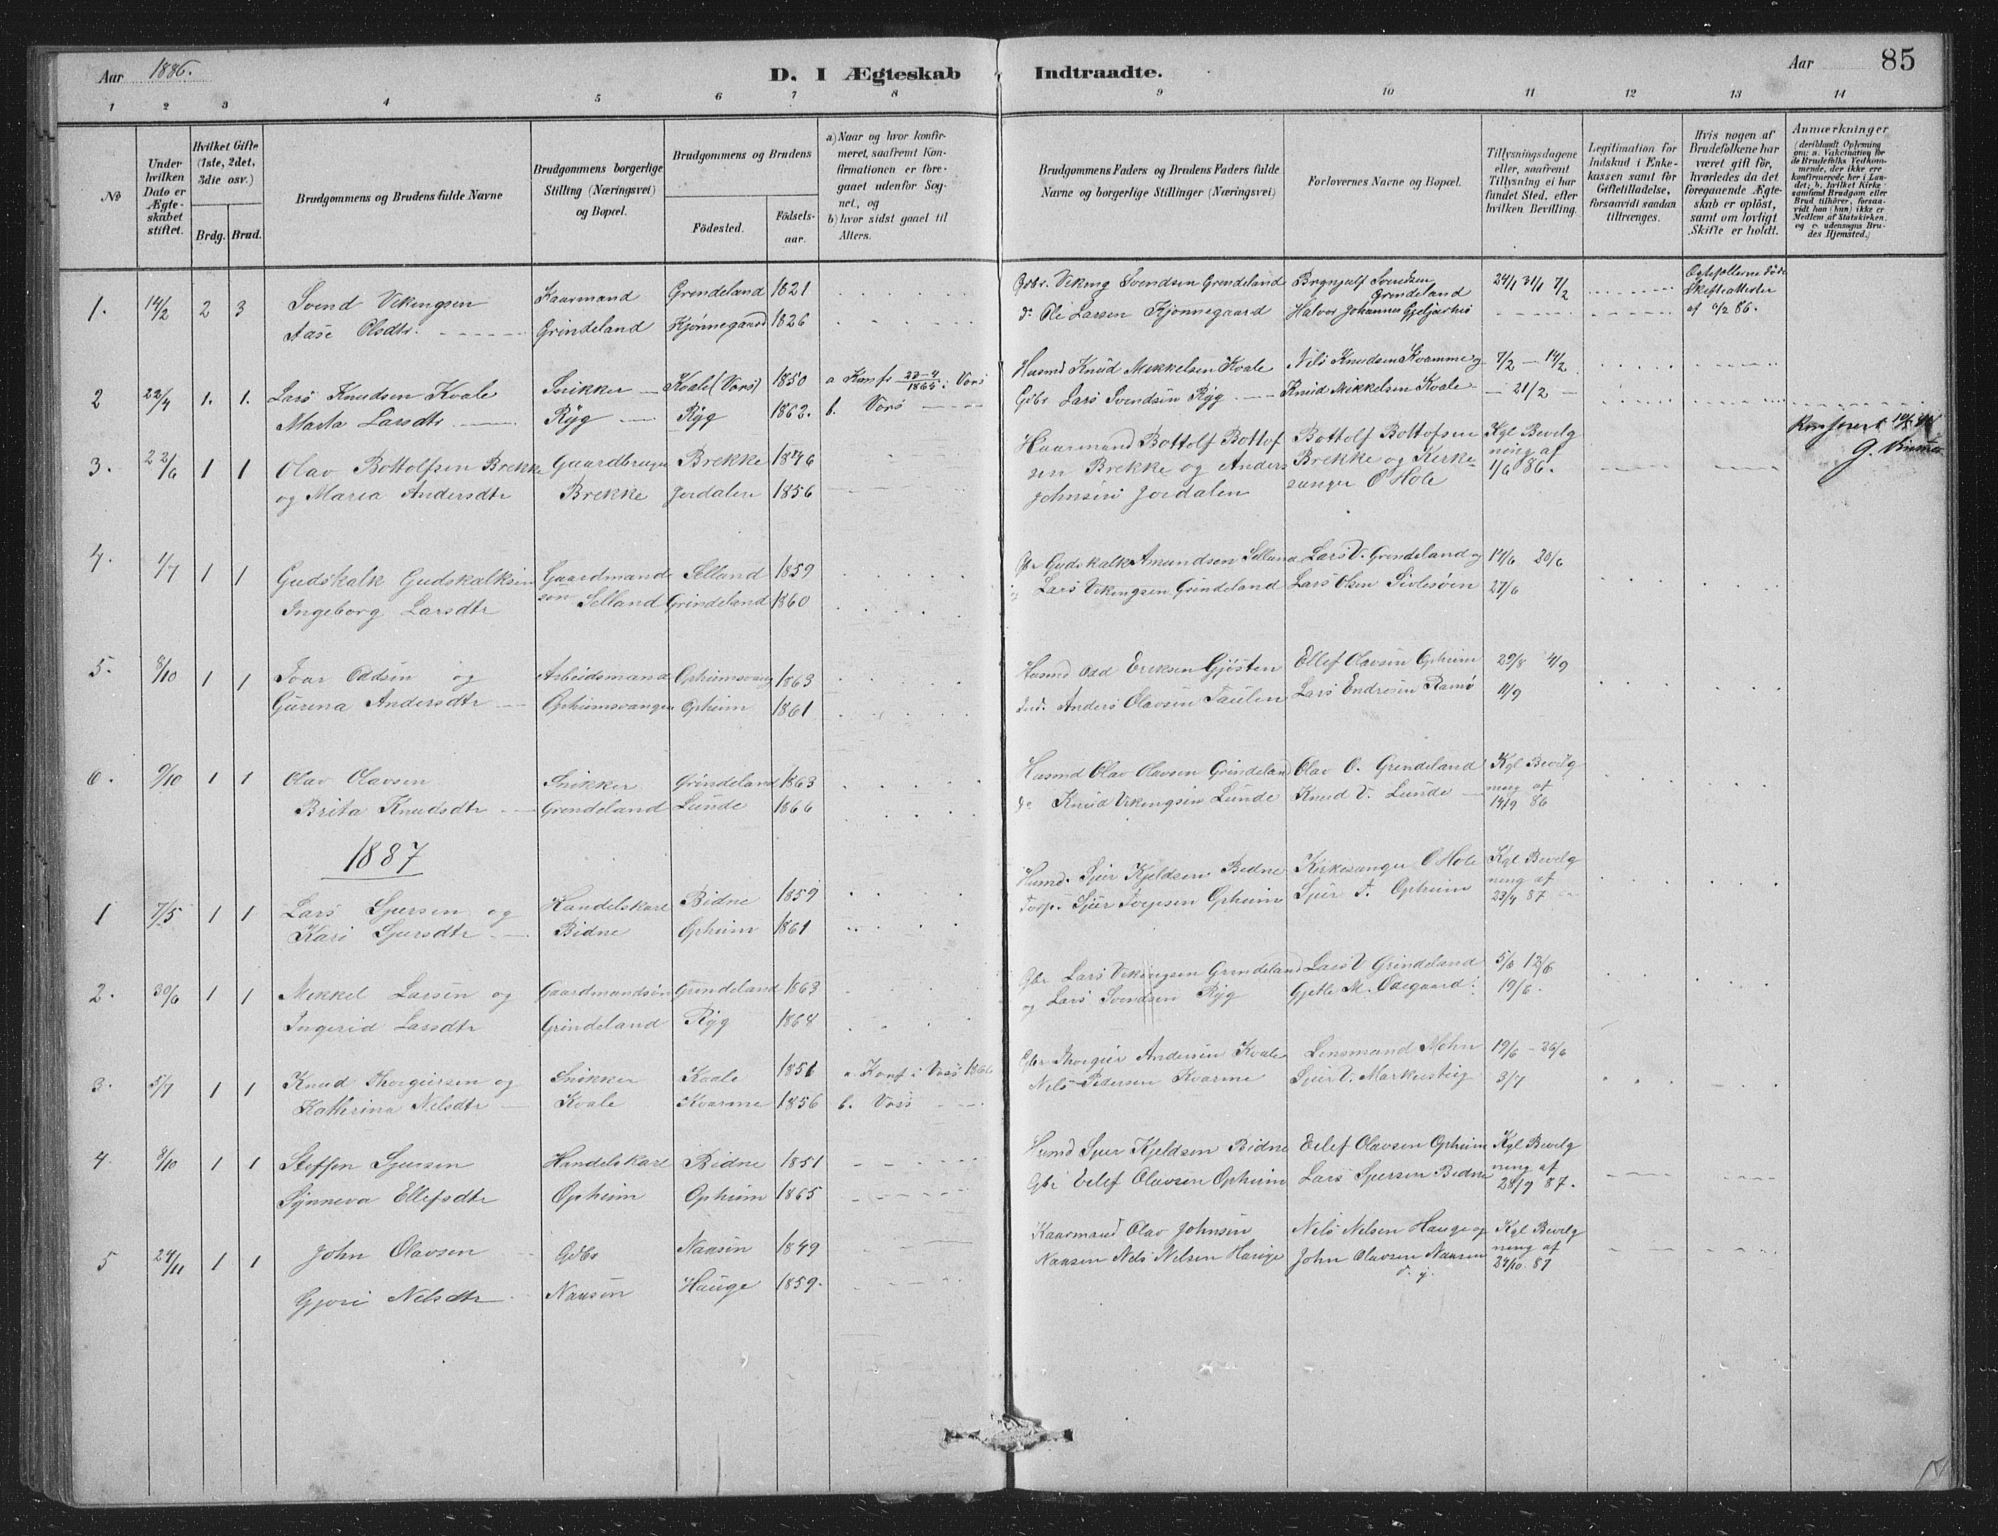 Aar 1886.
D. I Ægteskab Indtraadte.
Aar
85
1 2 3 4 5 6 7 8 9 10 11 12 13 14
№
Under hvilken Dato er Ægteskabet stiftet.
Hvilket Gifte (1ste, 2det, 3die osv.)
Brdg. Brud.
Brudgommens og Brudens fulde Navne
Brudgommens borgerlige Stilling (Næringsvei) og Bopæl.
Brudgommens og Brudens
Fødested.
Fødsels-aar.
a) Naar og hvor konfirmeret, saafremt Konfirmationen er foregaaet udenfor Sognet, og
b) hvor sidst gaaet til Alters.
Brudgommens Faders og Brudens Faders fulde Navne og borgerlige Stillinger (Næringsvei)
Forlovernes Navne og Bopæl.
Tillysningsdagene eller, saafremt Tillysning ei har fundet Sted, efter hvilken Bevilling.
Legitimation for Indskud i Enkekassen samt for Giftetilladelse, forsaavidt saadan tiltrænges.
Hvis nogen af Brudefolkene har været gift før, hvorledes da det foregaaende Ægteskab er opløst, samt om lovligt Skifte er holdt.
Anmærkninger (deriblandt Oplysning om: a. Vakcination for de Brudefolks Vedkommende, der ikke ere konfirmerede her i Landet; b. hvilket Kirkesamfund Brudgom eller Brud tilhører, forsaavidt han (hun) ikke er Medlem af Statskirken, og c. udensogns Brudes Hjemsted.)
1. 14/2 2 3 Svend Vikingsen Kaarmand Grindeland 1821 Gbr. Viking Svendsen Grindeland Brynjulf Svendsen 24/1 31/1 7/2 Skifteattester
Aase Olsdtr. Grindeland Kjønnegaard 1826 do Ole Larsen Kjønnegaard Grindeland Halvor Johannes af 6/2 86.
2 22/4 1. 1. Lars Knudsen Kvale Snikker Kvale (Vors) 1850 a Konf 23-4/1865 i Vors Husmd Knud Mikkelsen Kvale Nils Knudsen Kvamme og 7/2 - 14/2
Marta Larsdtr. Ryg Ryg 1862. b. Vors Gbr Lars Svendsen Ryg Knud Mikkelsen Kvale 21/2
3. 22/6 1 1 Olav Bottolfsen Brekke Gaardbruger Brekke 1846 Kaarmand Bottolf Bottof Bottolf Bottofsen Kgl Bevilg
og Maria Andersdtr Brekke Jordalen 1856 sen Brekke og Anders Brekke og Kirke- ning af
Johnsen Jordalen sanger O Hole 1/6 86.
Konfereret
4. 1/7 1 1 Gudskalk Gudskalksen Gaardmands Selland 1859 Gbr Gudskalk Amundsen Selland Lars V. Grindeland og 14/6 20/6
Ingeborg Larsdtr søn Selland Grindeland 1860 Lars Vikingsen Grindeland Lars Olsen Sivlesøen 27/6
5. 8/10 1 1 Ivar Oddsen og Arbeidsmand Opheimsvang 1863 Husmd Odd Eriksen Gjøsten Ellef Olavsen Opheim 29/8 4/9
Gurina Andersdtr Opheimsvangen Opheim 1861 Ind. Anders Olavsen Taulen Lars Endresen Ramø 11/9
6. 9/10 1 1 Olav Olavsen Snikker Grindeland 1863 Husmd Olav Olavsen Grindeland Olav O. Grindeland Kgl Bevilg
Brita Knudsdtr Grindeland Lunde 1866 do Knud Vikingsen Lunde Knud V. Lunde ning af 14/9 86
1887
1 7/5 1 1 Lars Sjursen og Handelskarl Bidne 1859 Husmd. Sjur Kjeldsen Bidne Kirkesanger O Hole Kgl Bevilg
Kari Sjursdtr Bidne Opheim 1861 Sjur Opheim Sjur T. Opheim ning af 23/4 87
2. 30/6 1 1 Mikkel Larsen og Gaardmandsøn Grindeland 1863 Gbr Lars Vikingsen Grindeland Lars V Grindeland 5/6 12/6
Ingerid Larsdtr Grindeland Ryg 1864 og Lars Svendsen Ryg Gjetle M. Ødegaard 19/6.
3. 5/7 1 1 Knud Thorgiersen og Snikker Kvale 1851 a. Konf i Vors 1866 Gbr Thorgier Andersen Kvale Lensmand Mohn 19/6 - 26/6
Katherina Nelsdtr Kvale Kvarme 1856 b. Vors Nels Pedersen Kvarme Sjur V. Markestig 3/7
4. 8/10 1 1 Steffen Sjursen Handelskarl Bidne 1851 Husmd Sjur Kjeldsen Bidne Eilef Olavsen Opheim Kgl Bevilg
Synneva Ellefsdtr Opheim Opheim 1865 Gbr Eilef Olavsen Opheim Lars Sjursen Bidne ning af 28/9 87.
5 24/11 1 1 John Olavsen Gdbr Naasen 1849 Kaarmand Olav Johnsen Nels Nelsen Hauge og Kgl Bevilg
Gjøri Nelsdtr Naasen Hauge 1859. Naasen Nels Nelsen Hauge John Olavsen Naasen ning af
d. y. 24/10 87